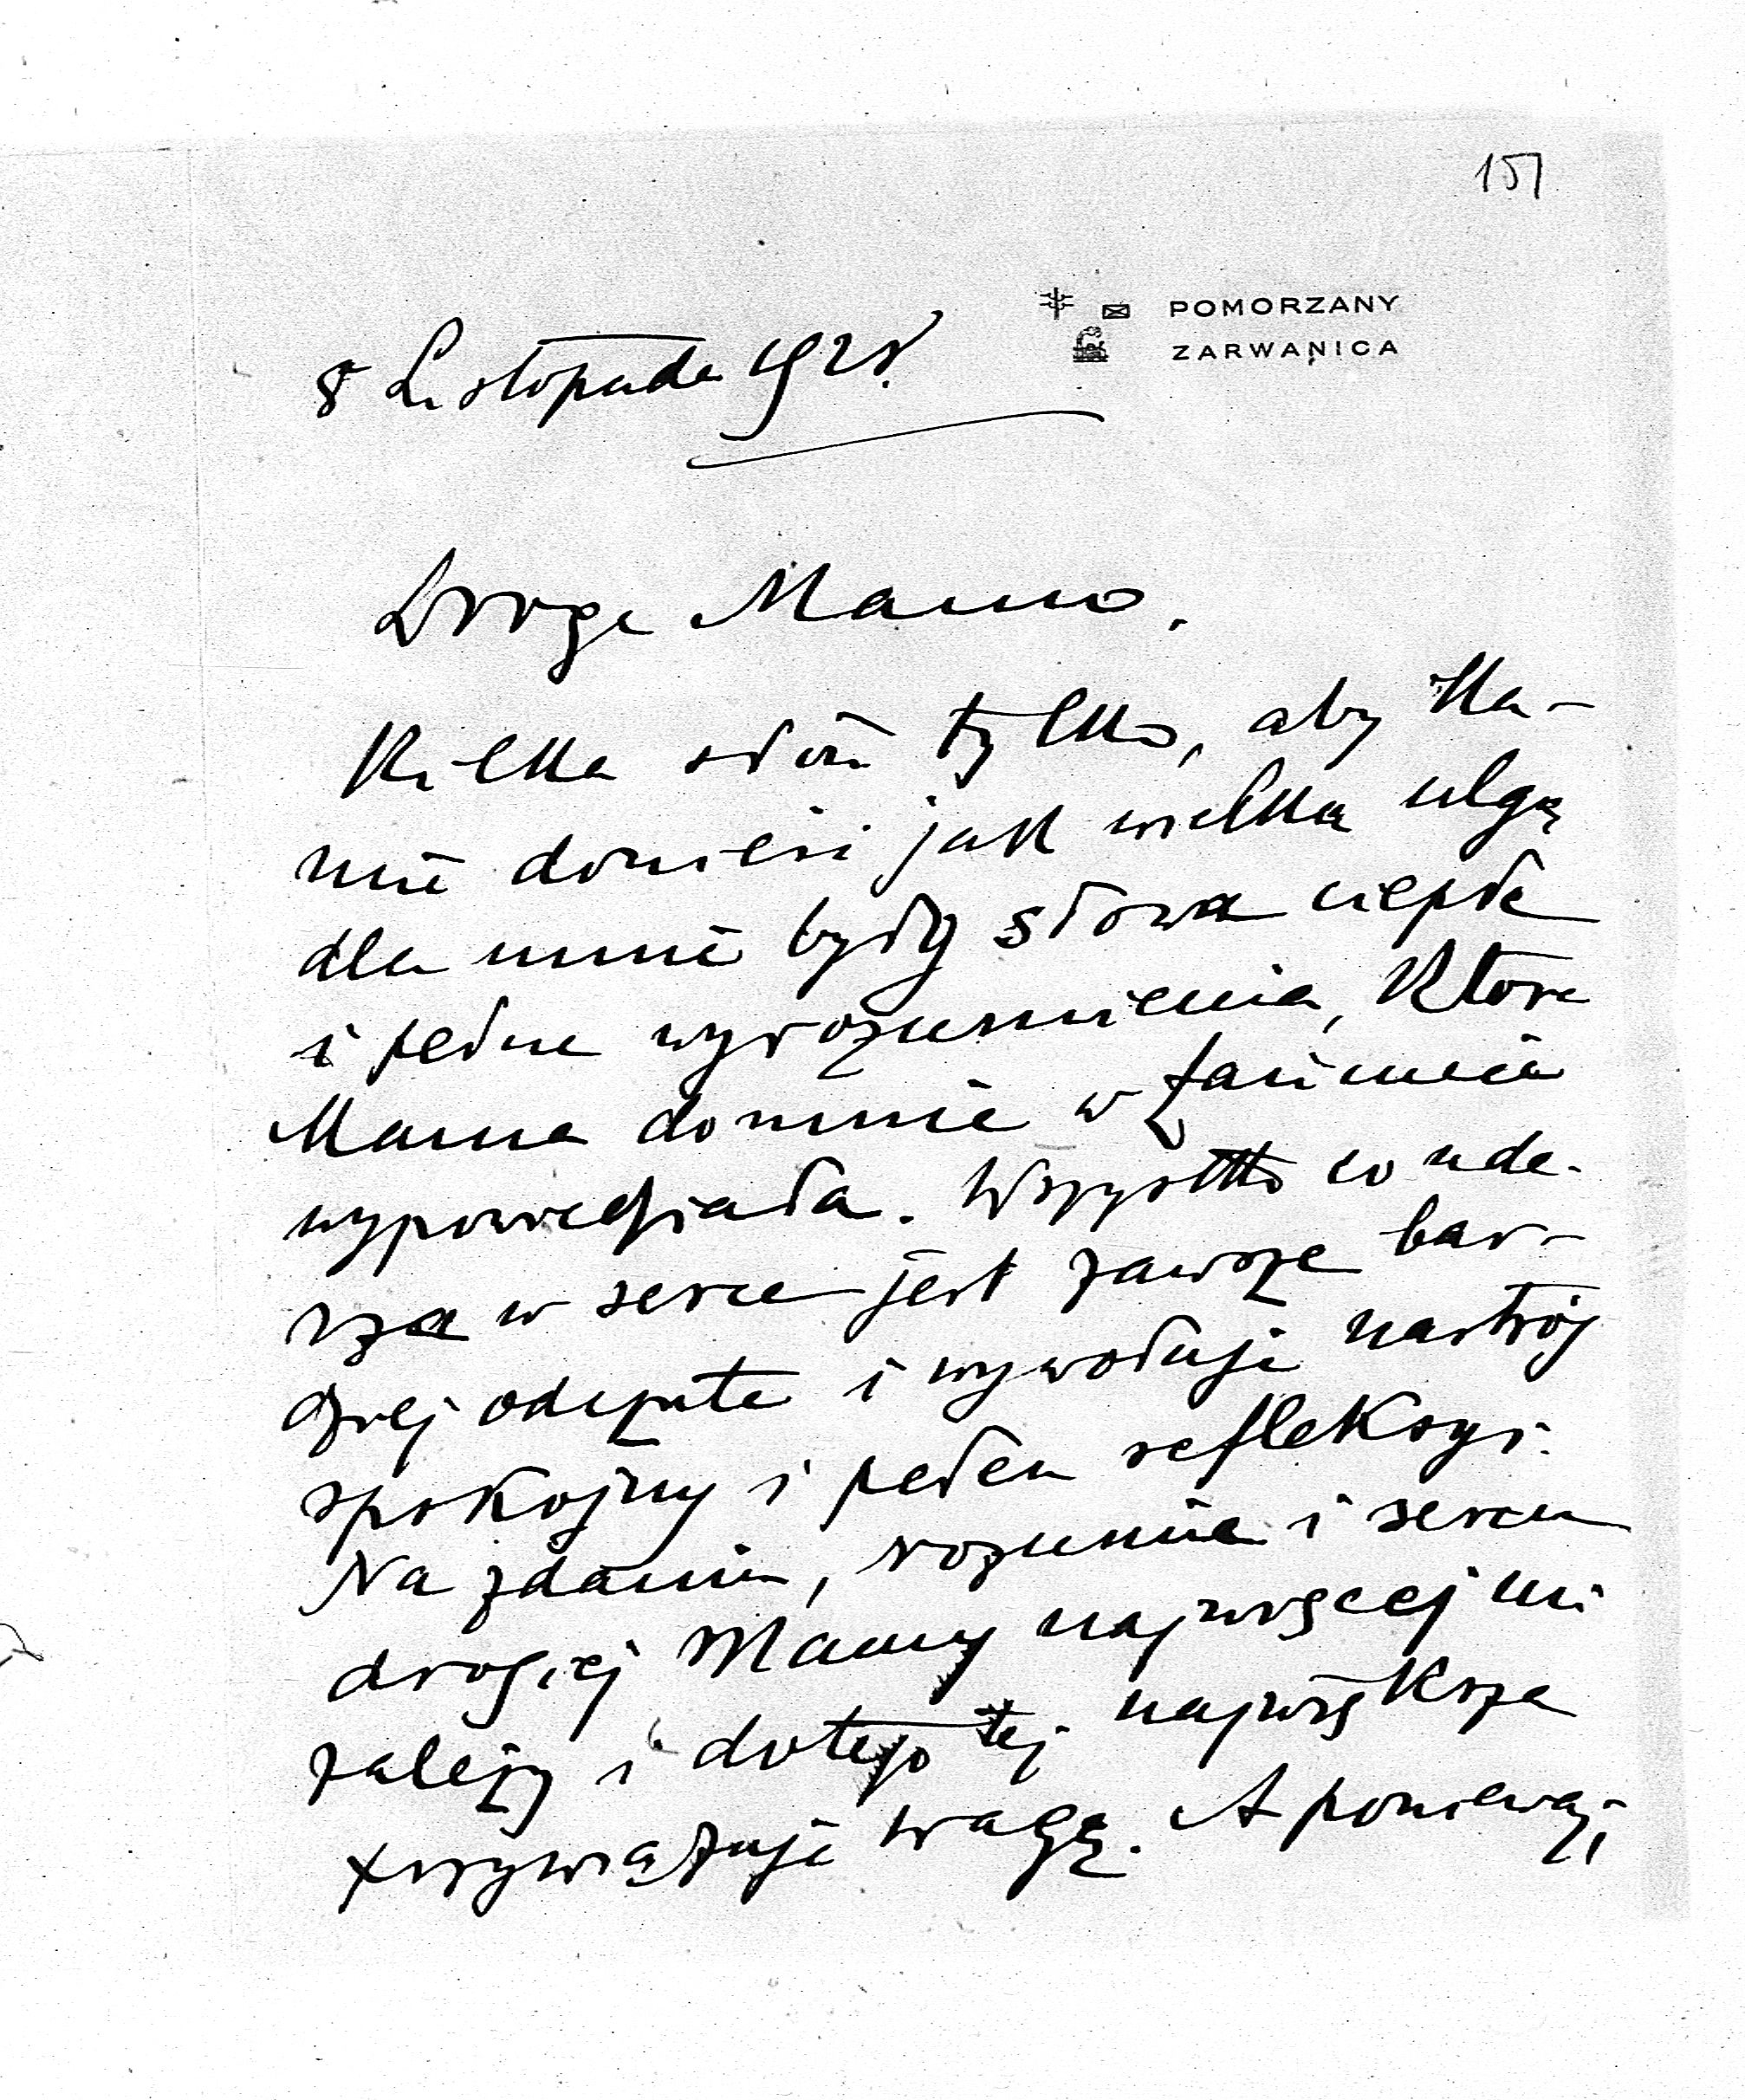 157
POMORZANY
ZARWANICA
8 Listopada 1928.
Droga Mamo.
Kilka słów tylko, aby Ma-
mie donieść jak wielką ulgą
dla mnie były słowa ciepłe
i pełne wyrozumienia, które
Mama do mnie w Łańcucie
wypowiedziała. Wszystko co ude-
rza w serce jest zawsze bar-
dziej odczute i wywołuje nastrój
spokojny i pełen refleksyi.
Na zdaniu, rozumie i sercu
drogiej Mamy najwięcej mi
zależy i do tej największą
przywiązuję wagę. A ponieważ